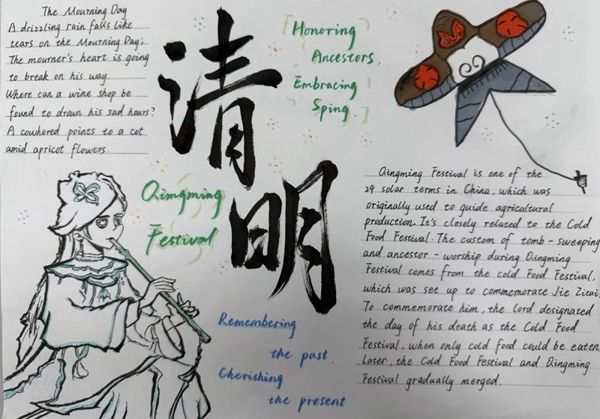 The Mourning Day
A drizzling rain falls like
tears on the Mourning Day;
The mourner's heart is going
to break on his way.
Where can a wine shop be
found to drown his sad hours?
A cowherd points to a cot
amid apricot flowers.
清明
Honoring
Ancestors,
Embracing
Sping.
Qingming
Festival
Qingming Festival is one of the
24 solar terms in China, which was
originally used to guide agricultural
production. It's closely related to the Cold
Food Festival. The custom of tomb-sweeping
and ancestor-worship during Qingming
Festival comes from the cold Food Festival,
which was set up to commemorate Jie Zitui.
To commemorate him, the Lord designated
the day of his death as the Cold Food
Festival, when only cold food could be eaten.
Later, the Cold Food Festival and Qingming
Festival gradually merged.
Remembering
the past.
Cherishing
the present